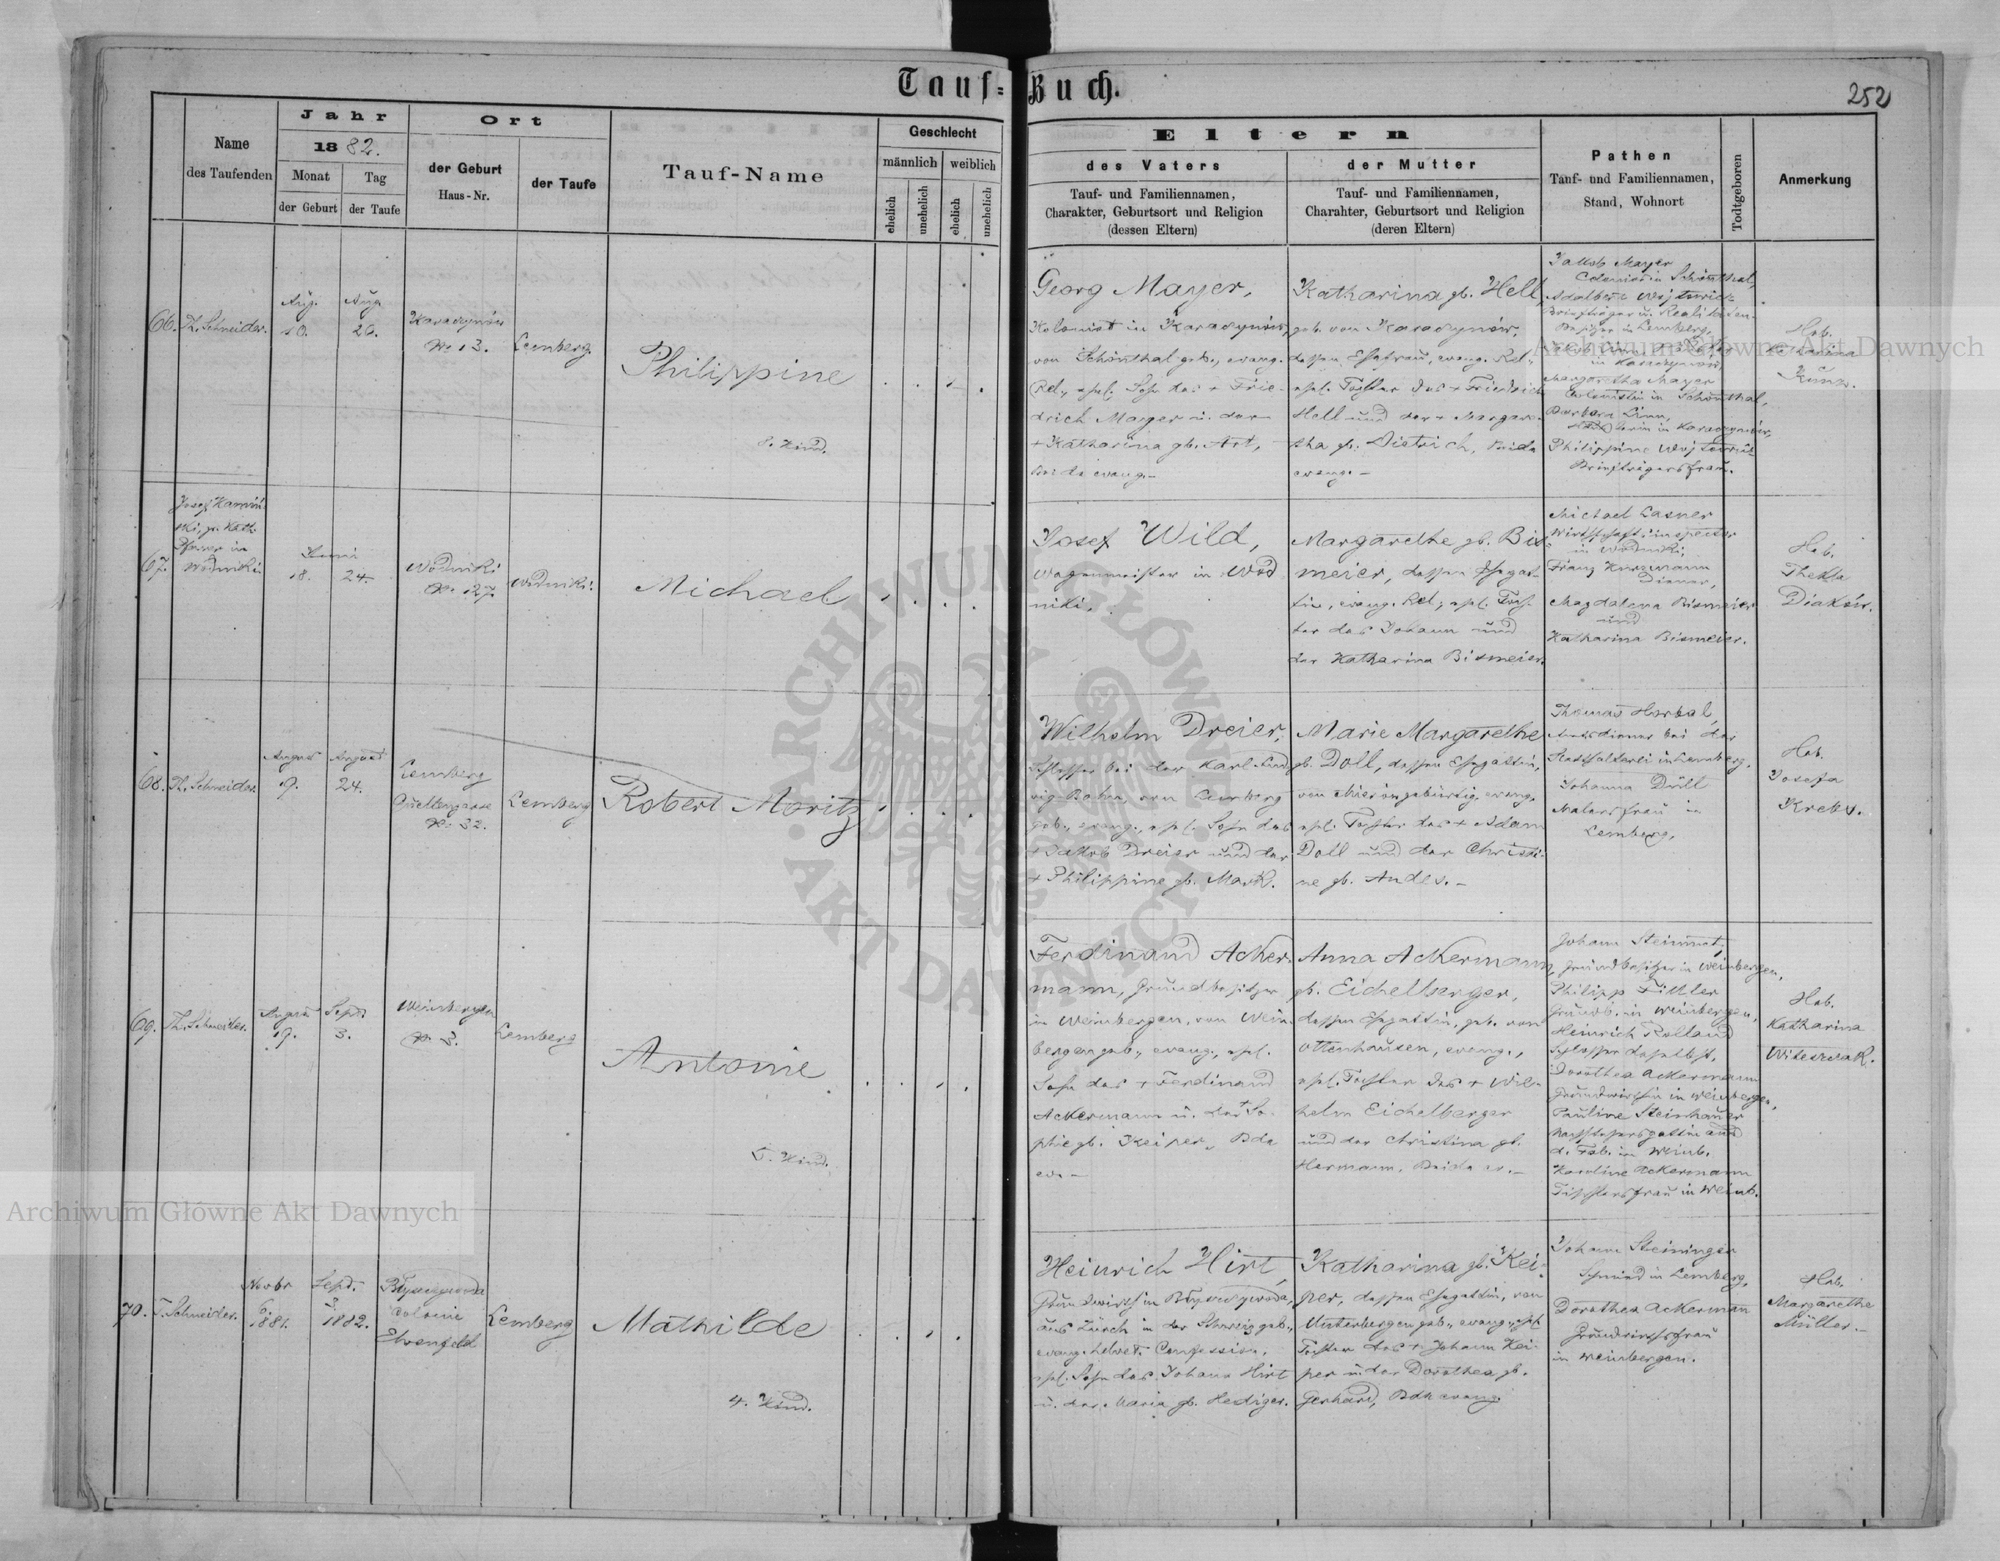 Tauf-Buch.
252
Name
des Taufenden
Jahr
1882.
Monat
der Geburt
Tag
der Taufe
Ort
der Geburt
Haus-Nr.
der Taufe
Tauf-Name
Geschlecht
männlich
weiblich
ehelich
unehelich
ehelich
unehelich
Eltern
des Vaters
Tauf- und Familiennamen,
Charakter, Geburtsort und Religion
(dessen Eltern)
der Mutter
Tauf- und Familiennamen,
Charahter, Geburtsort und Religion
(deren Eltern)
Pathen
Tauf- und Familiennamen,
Stand, Wohnort
Todtgeboren
Anmerkung
66. Th. Schneider.
Aug.
10.
Aug
20.
Karaczynów
No 13.
Lemberg.
Philippine
8. Kind.
Georg Mayer,
Kolonist in Karaczynów,
von Schönthal geb., evang.
Rel., ehel. Sohn des + Frie-
drich Mayer u. der
+ Katharina gb. Art,
Beide evang.-
Katharina gb. Hell,
geb. von Karaczynów,
dessen Ehefrau, evang. Rel.,
ehel. Tochter des + Friedrich
Hell und der + Margare-
tha gb. Dietrich, Beide
evang. -
Jakob Mayer
Colonist in Schönthal,
Briefträger u. Realitäten-
Besitzer in Lemberg,
in Karaczynów,
Margaretha Mayer
Colonistin in Schönthal,
Barbara Linn,
in Karaczynów,
Philippine
Briefträgersfrau.
Heb.
Katharina
Kunz.
67.
Josef
Pfarrer in
Wodniki.
Juni
18.
24.
Wodniki
No 127.
Wodniki.
Michael
Josef Wild,
Wagenmeister in Wod
niki,
Margarethe gb. Bis
meier, dessen Ehegat-
tin, evang. Rel., ehel. Toch-
ter des Johann und
der Katharina Bismeier.
Michael Lasner
Wirthschaftsinspector
in Wodniki,
Franz Kurzmann
Diener,
Magdalena Bismeier
und
Katharina Bismeier.
Heb.
Thekla
Diaków.
68. Th. Schneider.
August
9.
August
24.
Lemberg
Quellengasse
No 32.
Lemberg
Robert Moritz
Wilhelm Dreier,
Schlosser bei der Karl Lud
wig-Bahn, von Lemberg
geb., evang., ehel. Sohn des
+ Jakob Dreier und der
+ Philippine gb. Mark.
Marie Margarethe
gb. Doll, dessen Ehegattin,
von Mierów gebürtig, evang.
ehel. Tochter des + Adam
Doll und der Christi-
ne gb. Andes. -
Thomas Horbal,
Amtsdiener bei der
Statthalterei in Lemberg,
Johanna Düll
Malersfrau in
Lemberg,
Heb.
Josefa
Krebs.
69. Th. Schneider.
August
19.
Sept.
3.
Weinbergen
No 3.
Lemberg
Antonie
5. Kind.
Ferdinand Acker-
mann, Grundbesitzer
in Weinbergen, von Wein-
bergen geb., evang., ehel.
Sohn des + Ferdinand
Ackermann u. der + So-
phie gb. Keiper, Bde
ev. -
Anna Ackermann,
gb. Eichelberger,
dessen Ehegattin, geb. von
Ottenhausen, evang.,
ehel. Tochter des + Wil-
helm Eichelberger
und der Christina gb.
Hermann, Beide ev. -
Johann Steinmetz,
Grundbesitzer in Weinbergen,
Philipp Fittler
Grundb. in Weinbergen,
Heinrich Rolland
Schlosser daselbst,
Dorothea Ackermann
Grundwirthin in Weinbergen,
Pauline Steinhauer
und
in Weinb.
Karoline Ackermann
Tischlersfrau in Weinb.
Heb.
Katharina
Witeszczak.
70. T. Schneider.
Novbr
6.
1881.
Sept.
3.
1882.
Byszczywoda
Colonie
Ehrenfeld
Lemberg
Mathilde
4. Kind.
Heinrich Hirt,
Grundwirth in Byszczywoda,
aus Zürch in der Schweiz geb.,
evang. helvet. Confession,
ehel. Sohn des Johann Hirt
u. der Maria gb. Hediger.
Katharina gb. Kei-
per, dessen Ehegattin, von
Unterbergen geb., evang., ehel.
Tochter des + Johann Kei-
per u. der Dorothea gb.
Gerhard, Bde evang.
Johann Steininger
Schmied in Lemberg,
Dorothea Ackerman
Grundwirthsfrau
in Weinbergen.
Heb.
Margarethe
Müller. -
Archiwum Główne Akt Dawnych
Archiwum Główne Akt Dawnych
ARCHIWUM GŁÓWNE AKT DAWNYCH